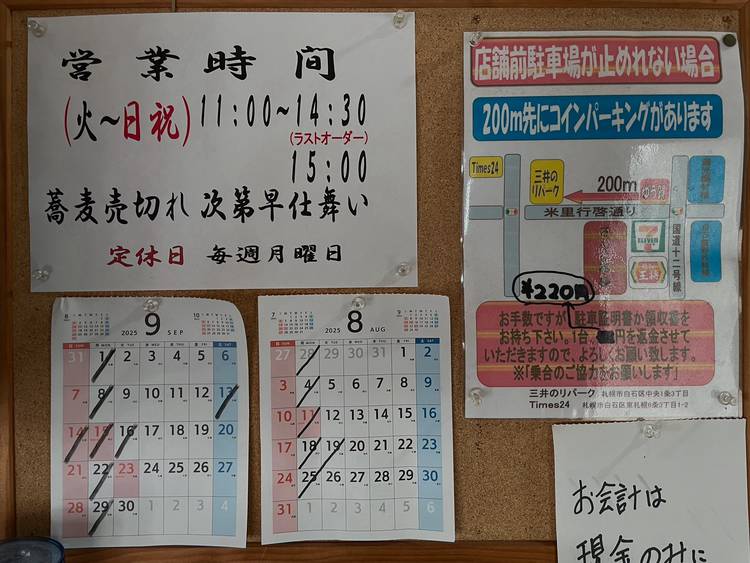 営業時間
(火～日祝) 11:00～14:30
(ラストオーダー)
15:00
蕎麦売切れ 次第早仕舞い
定休日 毎週月曜日
店舗前駐車場が止めれない場合
200m先にコインパーキングがあります
Times24
三井の
リパーク
200m
米里行啓通り
国道十二号線
ELEVEN
¥220円
お手数ですが、駐車証明書か領収書を
お持ち下さい。1台、 円を返金させて
いただきますので、よろしくお願い致します。
※「乗合のご協力をお願いします」
三井のリパーク 札幌市白石区中央1条3丁目
Times24 札幌市白石区東札幌6条1丁目1-2
8 2025 9 SEP 10
31 1 2 3 4 5 6
7 8 9 10 11 12 13
14 15 16 17 18 19 20
21 22 23 24 25 26 27
28 29 30 1 2 3 4
7 2025 8 AUG 9
27 28 29 30 31 1 2
3 4 5 6 7 8 9
10 11 12 13 14 15 16
17 18 19 20 21 22 23
24 25 26 27 28 29 30
31 1 2 3 4 5 6
お会計は
現金のみに